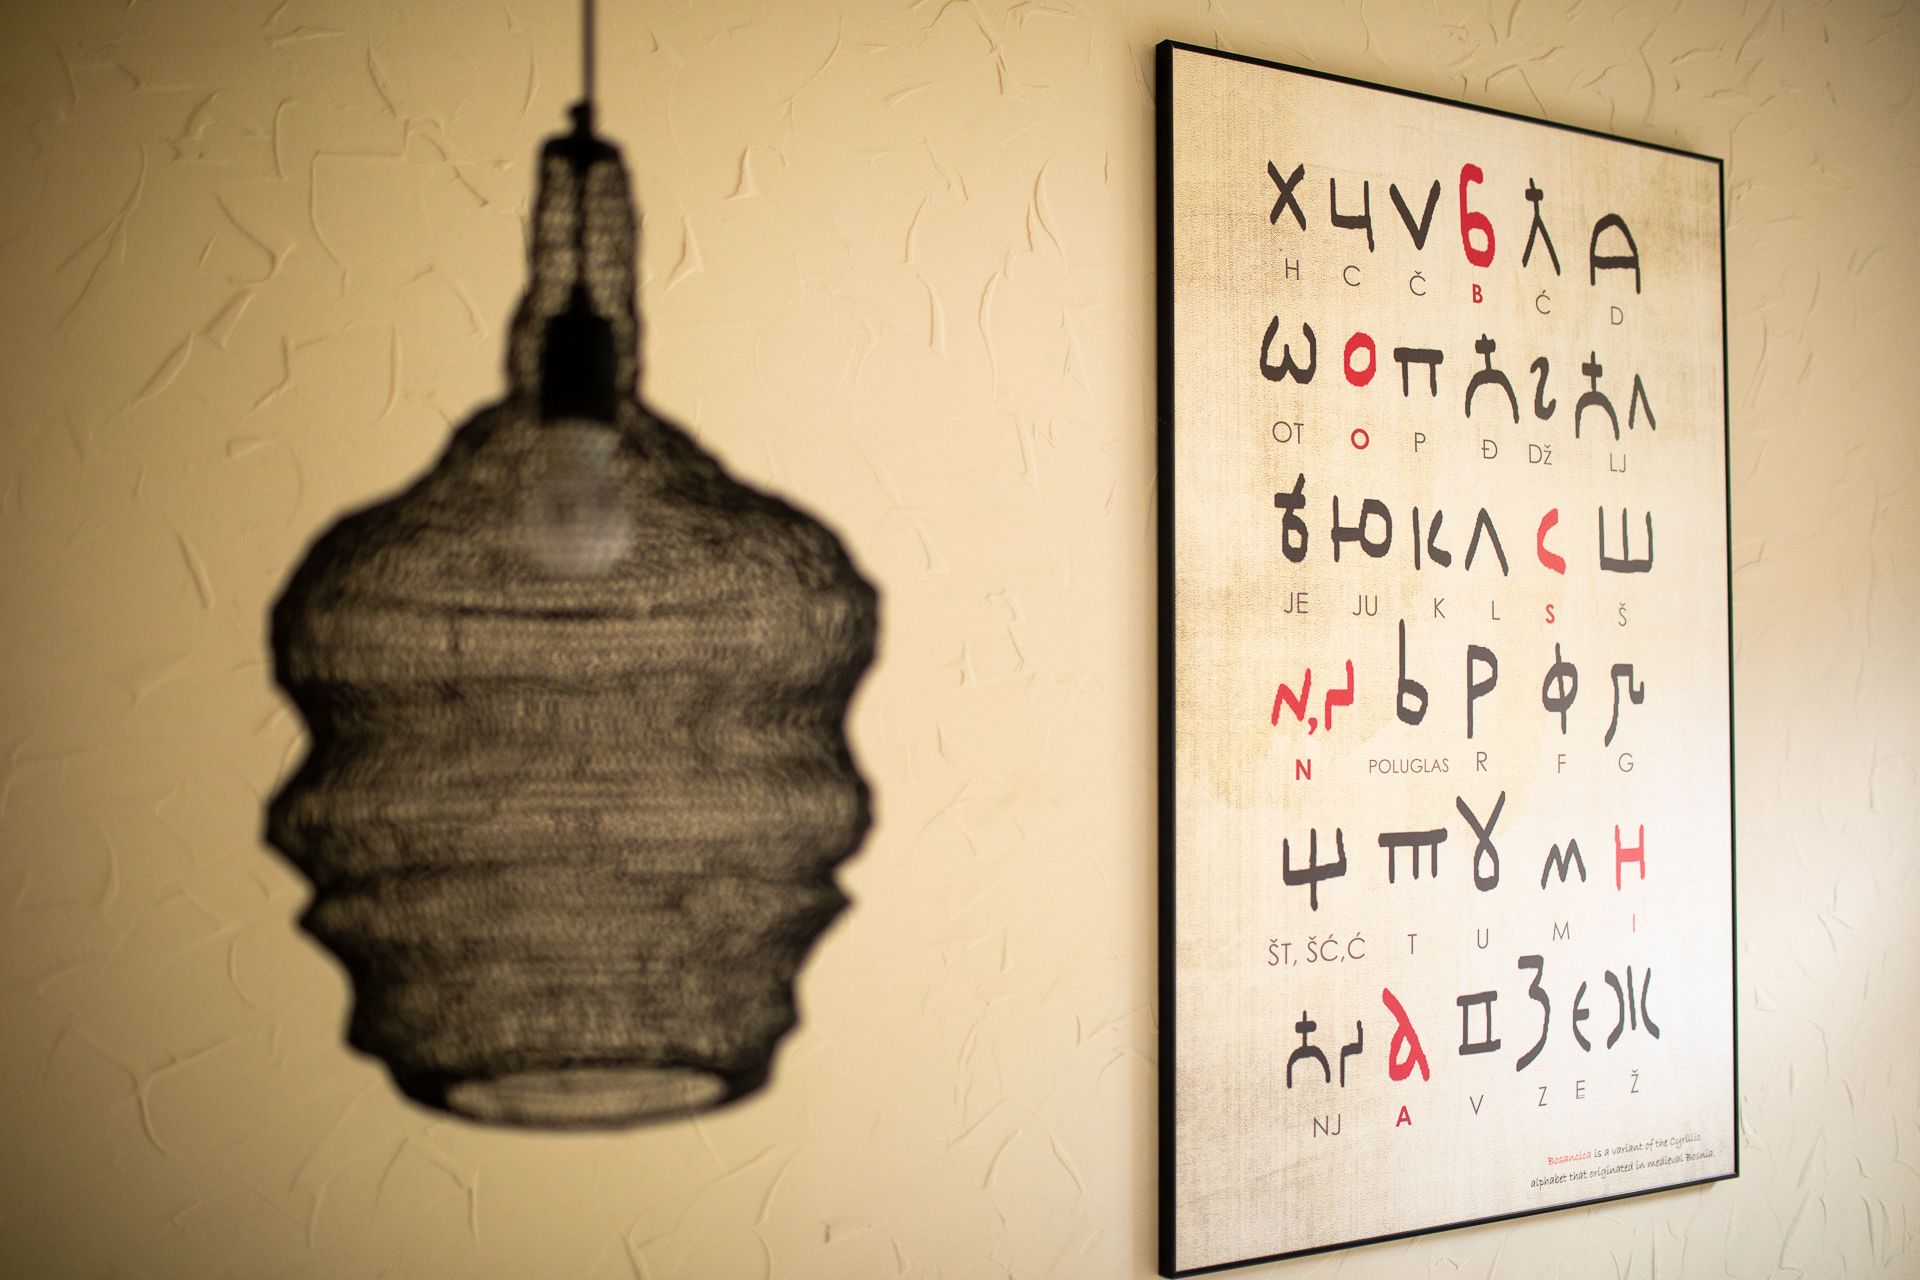 Х Ц V Б Ћ Д
H C Č B Ć D
Ѡ О П Ђ Ꙅ Ћ Л
OT O P Đ DŽ LJ
Ѣ Ю К Л С Ш
JE JU K L S Š
И, Ь Р Ф
N POLUGLAS R F G
Ψ Т Ɣ М Н
ŠT, ŠĆ,Ć T U M I
а З Є Ж
NJ A V Z E Ž
Bosancica is a variant of the Cyrillic
alphabet that originated in medieval Bosnia.